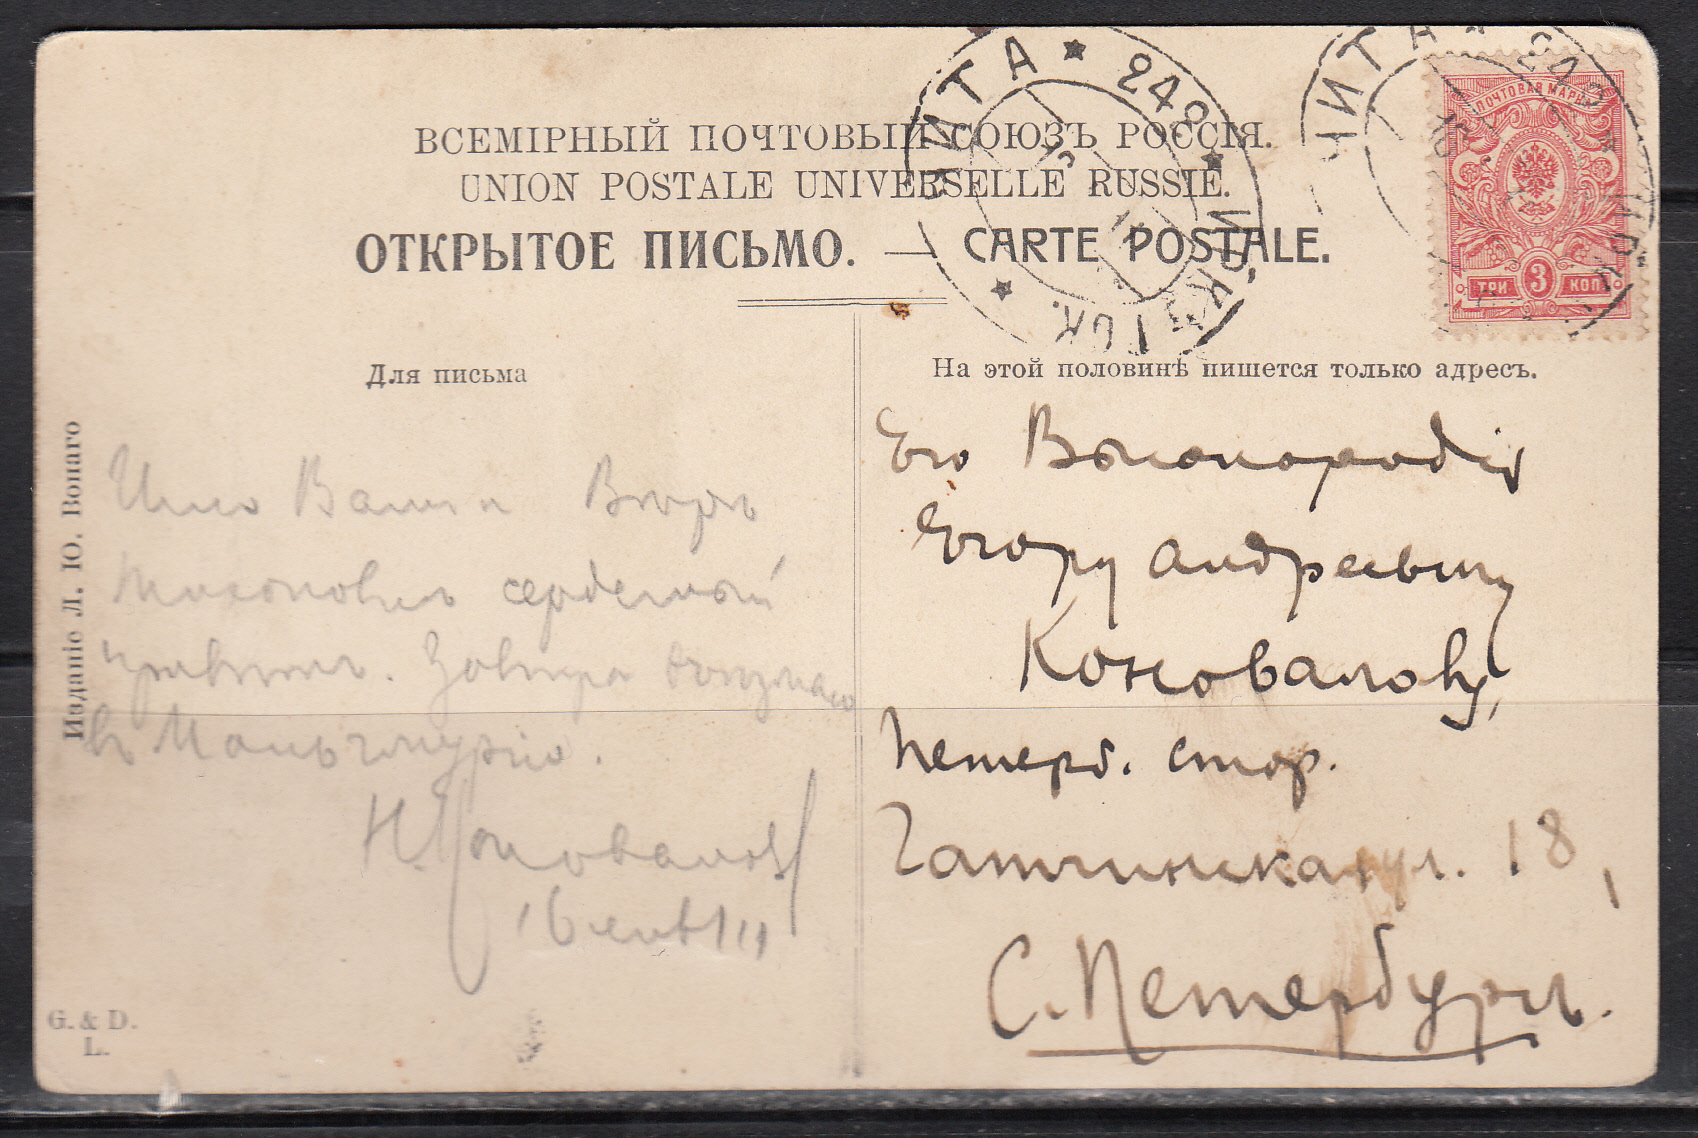 ВСЕМІРНЫЙ ПОЧТОВЫЙ СОЮЗЪ РОССІЯ.
UNION POSTALE UNIVERSELLE RUSSIE.
ОТКРЫТОЕ ПИСЬМО. — CARTE POSTALE.
ЧИТА * 248 *
ЧИТА * 248 *
ПОЧТОВАЯ МАРКА
ТРИ 3 КОП
Для письма
На этой половинѣ пишется только адресъ.
Изданіе Л. Ю. Вонаго
Шлю
сердечный
привѣтъ. Завтра
въ Маньчжурію.
Н. Коновалов
Его Высокородію
Егору Андреевичу
Коновалову,
Петерб. стор.
Гатчинская ул. 18,
С. Петербургъ.
G. & D.
L.